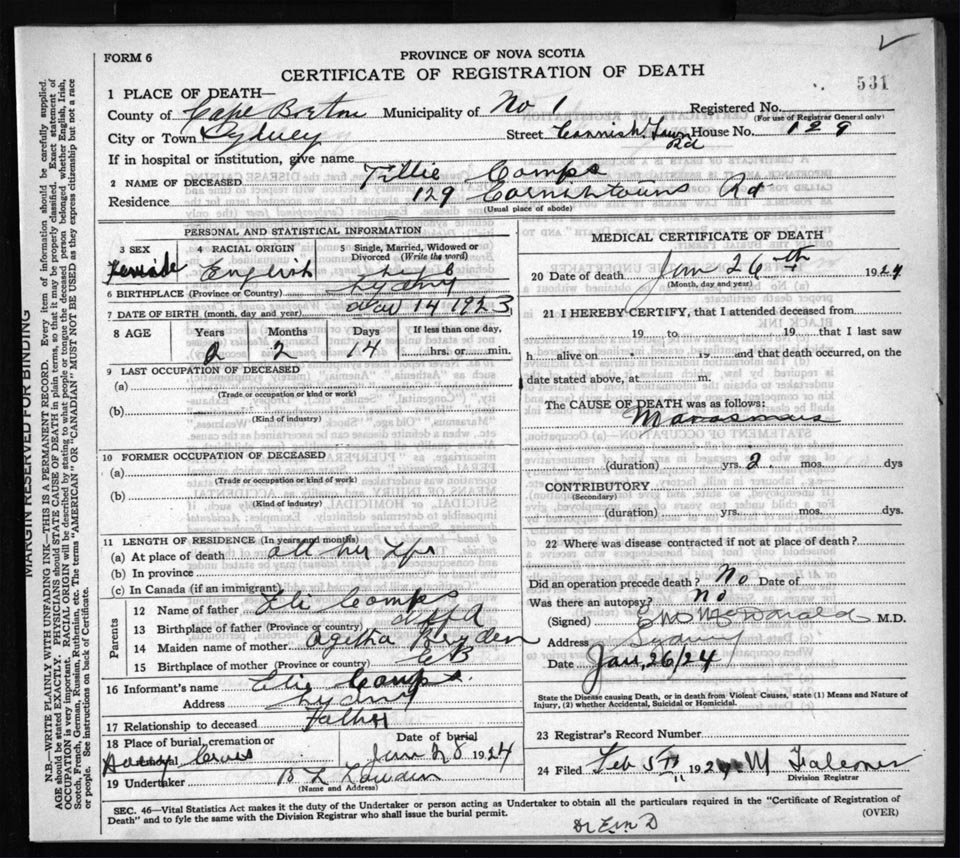 PROVINCE OF NOVA SCOTIA
FORM 6
CERTIFICATE OF REGISTRATION OF DEATH
531
1 PLACE OF DEATH—
County of Cape Breton Municipality of No 1 Registered No.
(For use of Registrar General only)
City or Town Sydney Street Cornish Town Rd House No. 129
If in hospital or institution, give name
2 NAME OF DECEASED Tillie Comps
Residence 129 Cornishtown Rd
(Usual place of abode)
PERSONAL AND STATISTICAL INFORMATION
3 SEX Female
4 RACIAL ORIGIN English
5 Single, Married, Widowed or Divorced (Write the word)
6 BIRTHPLACE (Province or Country) Sydney
7 DATE OF BIRTH (month, day and year) Nov 14 1923
8 AGE Years Months Days If less than one day,
2 2 14 hrs. or min.
9 LAST OCCUPATION OF DECEASED
(a)
(Trade or occupation or kind or work)
(b)
(Kind of industry)
10 FORMER OCCUPATION OF DECEASED
(a)
(Trade or occupation or kind of work)
(b)
(Kind of industry)
11 LENGTH OF RESIDENCE (In years and months)
(a) At place of death all her life
(b) In province
(c) In Canada (if an immigrant)
Parents
12 Name of father Eli Comps
13 Birthplace of father (Province or country)
14 Maiden name of mother Agetha
15 Birthplace of mother (Province or country) CB
16 Informant's name Elie Comps
Address Sydney
17 Relationship to deceased Father
18 Place of burial, cremation or removal Date of burial
Holy Cross Jan 28 1924
19 Undertaker
(Name and Address)
MEDICAL CERTIFICATE OF DEATH
20 Date of death Jan 26th 1924
(Month, day and year)
21 I HEREBY CERTIFY, that I attended deceased from
19 to 19 that I last saw
h alive on 19 and that death occurred, on the
date stated above, at m.
The CAUSE OF DEATH was as follows:
Marasmus
(duration) yrs. 2 mos. dys
CONTRIBUTORY
(Secondary)
(duration) yrs. mos. dys
22 Where was disease contracted if not at place of death?
Did an operation precede death? No Date of
Was there an autopsy? No
(Signed) McDonald M.D.
Address Sydney
Date Jan, 26/24
State the Disease causing Death, or in death from Violent Causes, state (1) Means and Nature of
Injury, (2) whether Accidental, Suicidal or Homicidal.
23 Registrar's Record Number
24 Filed Feb 5th 1924 M
Division Registrar
SEC. 46—Vital Statistics Act makes it the duty of the Undertaker or person acting as Undertaker to obtain all the particulars required in the "Certificate of Registration of
Death" and to fyle the same with the Division Registrar who shall issue the burial permit.
(OVER)
MARGIN RESERVED FOR BINDING
N.B.—WRITE PLAINLY WITH UNFADING INK—THIS IS A PERMANENT RECORD. Every item of information should be carefully supplied.
AGE should be stated EXACTLY. PHYSICIANS should STATE CAUSE OF DEATH in plain terms, so that it may be properly classified. Exact statement of
OCCUPATION is very important. RACIAL ORIGIN will be described by stating to what people or tongue the deceased person belonged whether English, Irish,
Scotch, French, German, Russian, Ruthenian, etc. The terms "AMERICAN" OR "CANADIAN" MUST NOT BE USED as they express citizenship but not a race
or people. See instructions on back of Certificate.